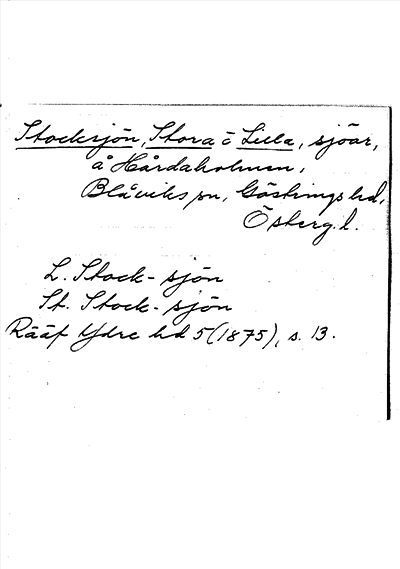 Stocksjön, Stora o Lilla, sjöar,
å Hårdaholmen,
Blåviks sn, Göstrings hd,
Östergl.
L. Stock-sjön
St. Stock-sjön
Rääf Ydre hd 5 (1875), s. 13.